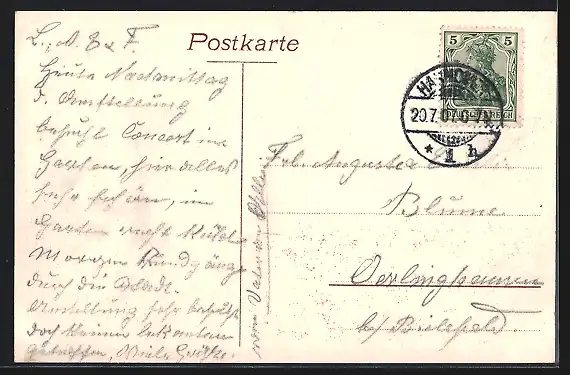 Postkarte
5 5
DEUTSCHES REICH
HANNOVER
20.7.07
* 1 h
L. A. E & F.
Heute Nachmittag
d. Ausstellung
besucht Concert im
Garten, hier alles
sehr schön, im
Garten
Morgen Rundgang
durch die Stadt.
Ausstellung sehr besucht
doch keinen bekannten
getroffen, Viele Grüße.
Frl. Auguste
Blume
Oerlinghausen
b/ Bielefeld.